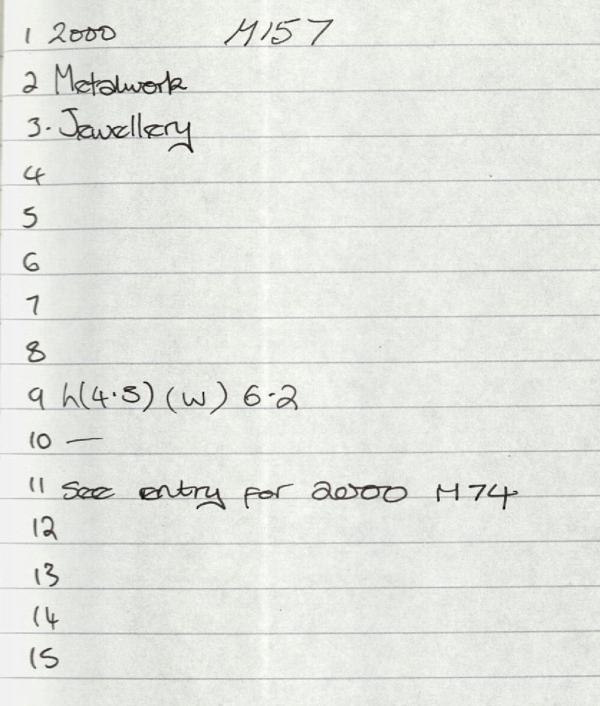 1 2000 M157
2 Metalwork
3. Jewellery
4
5
6
7
8
9 h(4.5) (w) 6.2
10 —
11 See entry for 2000 M74
12
13
14
15